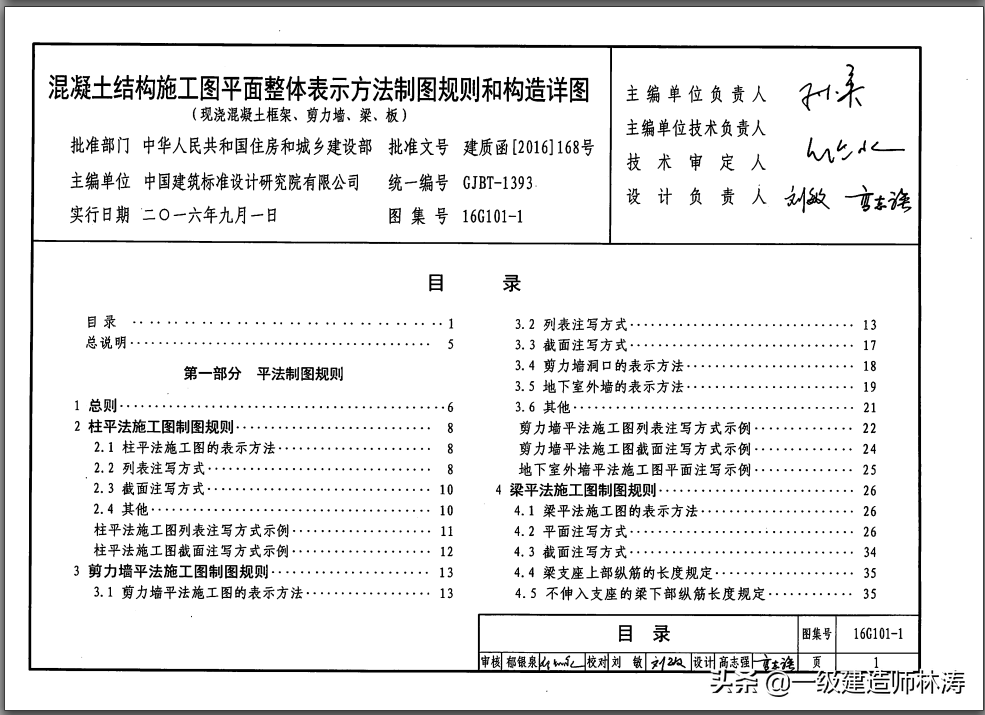 混凝土结构施工图平面整体表示方法制图规则和构造详图
(现浇混凝土框架、剪力墙、梁、板)
批准部门 中华人民共和国住房和城乡建设部 批准文号 建质函[2016]168号
主编单位 中国建筑标准设计研究院有限公司 统一编号 GJBT-1393
实行日期 二〇一六年九月一日 图集号 16G101-1
主编单位负责人
主编单位技术负责人
技术审定人
设计负责人 刘敏 高志强
目 录
目录 1
总说明 5
第一部分 平法制图规则
1 总则 6
2 柱平法施工图制图规则 8
2.1 柱平法施工图的表示方法 8
2.2 列表注写方式 8
2.3 截面注写方式 10
2.4 其他 10
柱平法施工图列表注写方式示例 11
柱平法施工图截面注写方式示例 12
3 剪力墙平法施工图制图规则 13
3.1 剪力墙平法施工图的表示方法 13
3.2 列表注写方式 13
3.3 截面注写方式 17
3.4 剪力墙洞口的表示方法 18
3.5 地下室外墙的表示方法 19
3.6 其他 21
剪力墙平法施工图列表注写方式示例 22
剪力墙平法施工图截面注写方式示例 24
地下室外墙平法施工图平面注写示例 25
4 梁平法施工图制图规则 26
4.1 梁平法施工图的表示方法 26
4.2 平面注写方式 26
4.3 截面注写方式 34
4.4 梁支座上部纵筋的长度规定 35
4.5 不伸入支座的梁下部纵筋长度规定 35
目 录 图集号 16G101-1
审核 郁银泉 校对 刘敏 刘敏 设计 高志强 高志强 页 1
头条 @一级建造师林涛